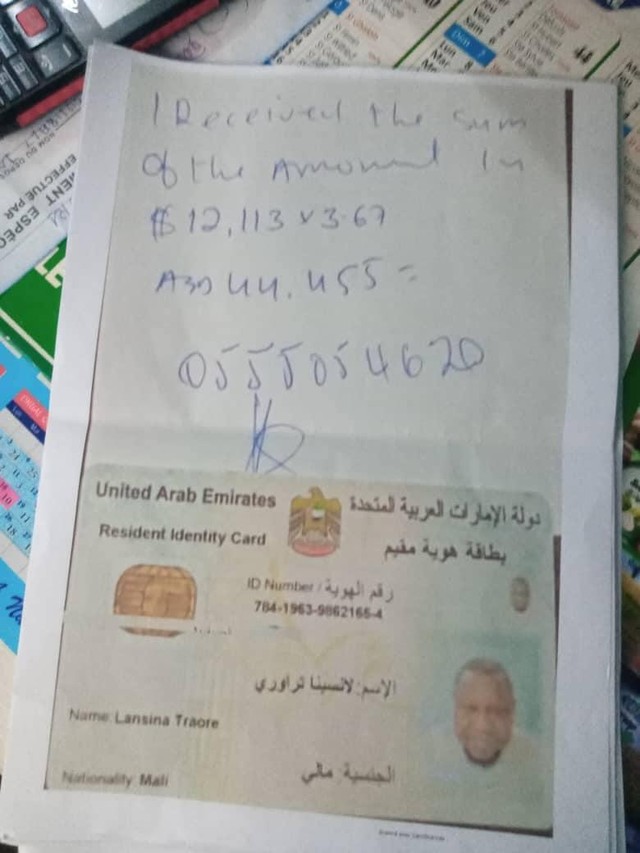 I Received the sum
of the Amount In
$ 12,113 x 3.67
AED 44.455 =
0555054620
United Arab Emirates
دولة الإمارات العربية المتحدة
Resident Identity Card
بطاقة هوية مقيم
ID Number / رقم الهوية
784-1963-9862165-4
الإسم: لانسينا تراوري
Name: Lansina Traore
Nationality: Mali
الجنسية: مالي
44
EFFECTUE PAR